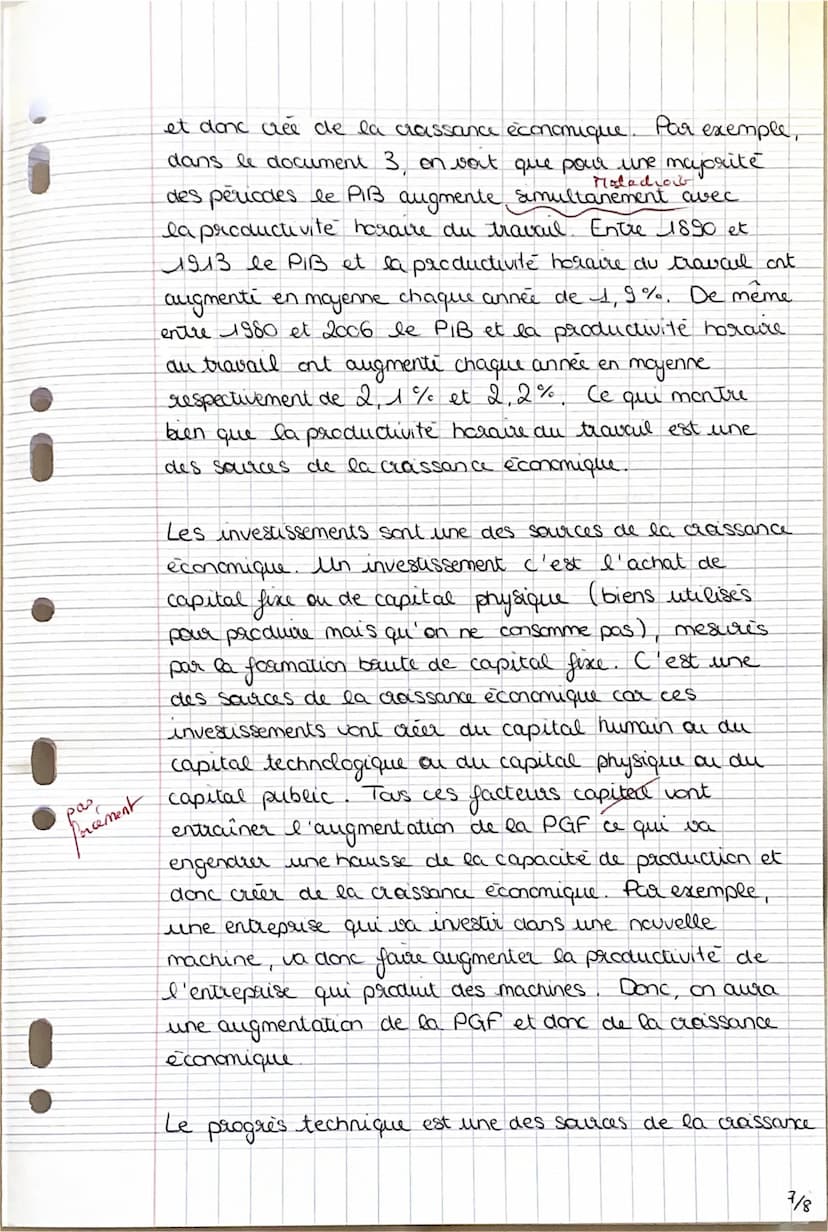 et donc crée de la croissance économique. Par exemple,
dans le document 3, on voit que pour une majorité
Maladroit
des périodes le PIB augmente simultanement avec
la productivité horaire du travail. Entre 1890 et
1913 le PIB et la productivité horaire du travail ont
augmenté en moyenne chaque année de 1,9%. De même
entre 1980 et 2006 le PIB et la productivité horaire
du travail ont augmenté chaque année en moyenne
respectivement de 2,1% et 2,2%. Ce qui montre
bien que la productivité horaire du travail est une
des sources de la croissance économique.
Les investissements sont une des sources de la croissance
économique. Un investissement c'est l'achat de
capital fixe ou de capital physique (biens utilisés
pour produire mais qu'on ne consomme pas), mesurés
par la formation brute de capital fixe. C'est une
des sources de la croissance économique car ces
investissements vont créer du capital humain ou du
capital technologique ou du capital physique ou du
capital public. Tous ces facteurs capital vont
pas forcément
entraîner l'augmentation de la PGF ce qui va
engendrer une hausse de la capacité de production et
donc créer de la croissance économique. Par exemple,
une entreprise qui va investir dans une nouvelle
machine, va donc faire augmenter la productivité de
l'entreprise qui produit des machines. Donc, on aura
une augmentation de la PGF et donc de la croissance
économique.
Le progrès technique est une des sources de la croissance
7/8